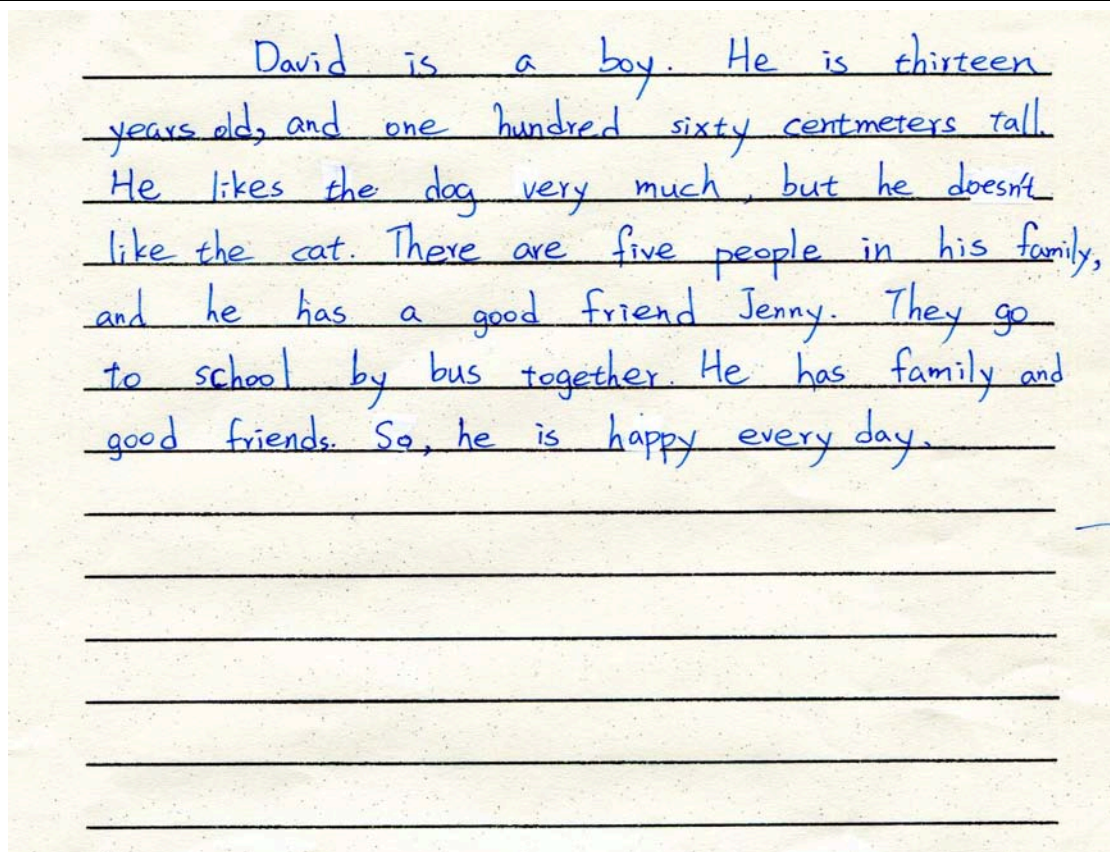 David is a boy. He is thirteen
years old, and one hundred sixty centmeters tall.
He likes the dog very much, but he doesn't
like the cat. There are five people in his family,
and he has a good friend Jenny. They go
to school by bus together. He has family and
good friends. So, he is happy every day.